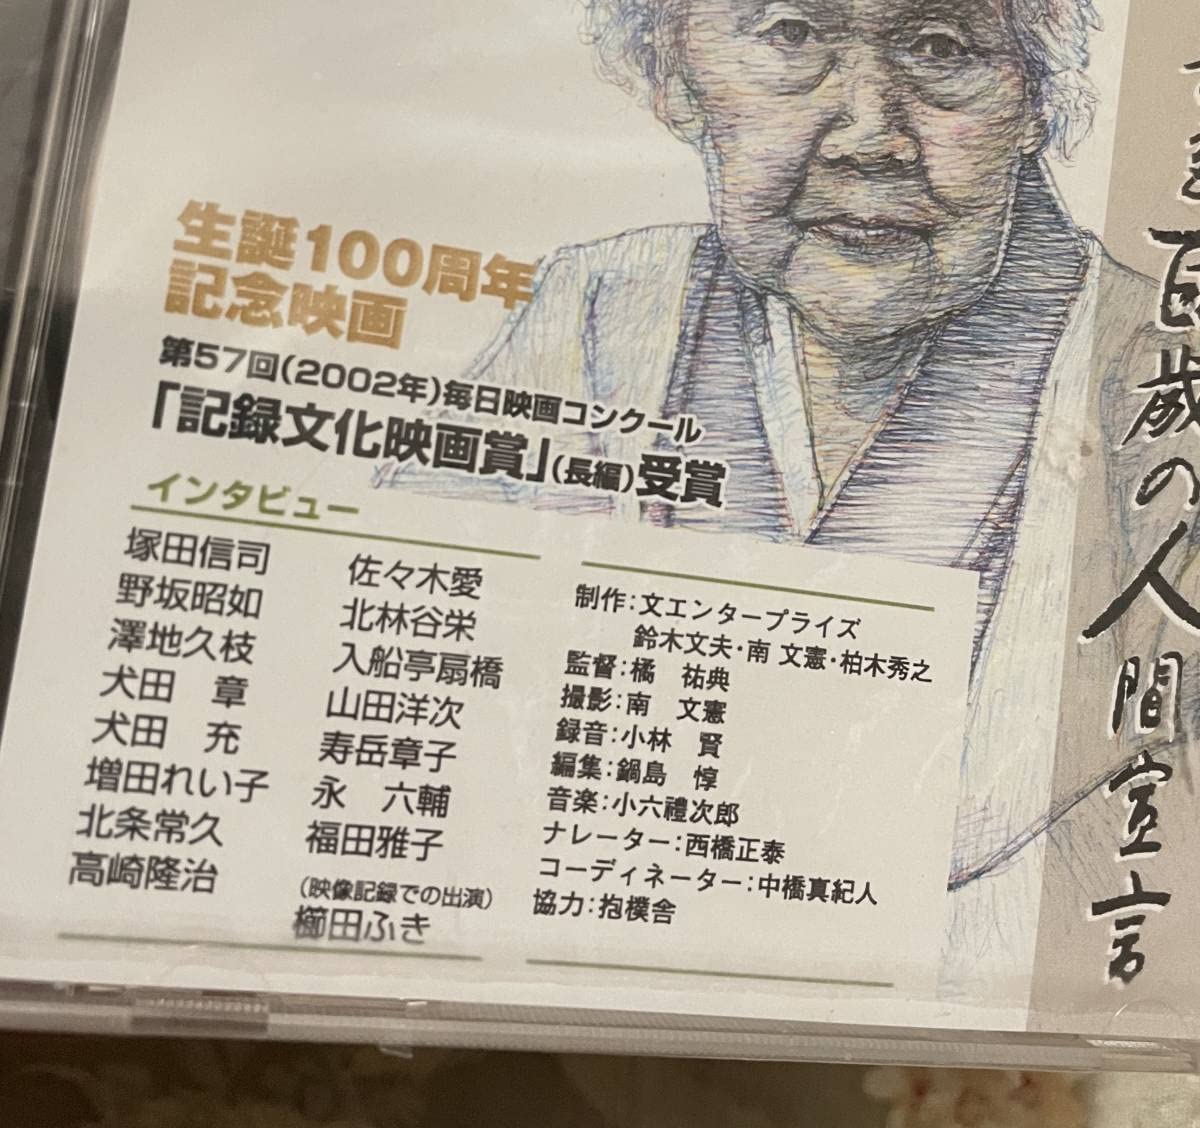 生誕100周年
記念映画
第57回(2002年)毎日映画コンクール
「記録文化映画賞」(長編)受賞
インタビュー
塚田信司
野坂昭如
澤地久枝
犬田 章
犬田 充
増田れい子
北条常久
高崎隆治
佐々木愛
北林谷栄
入船亭扇橋
山田洋次
寿岳章子
永 六輔
福田雅子
(映像記録での出演)
櫛田ふき
制作:文エンタープライズ
鈴木文夫・南 文憲・柏木秀之
監督:橘 祐典
撮影:南 文憲
録音:小林 賢
編集:鍋島 惇
音楽:小六禮次郎
ナレーター:西橋正泰
コーディネーター:中橋真紀人
協力:抱樸舎
百歳の人間宣言